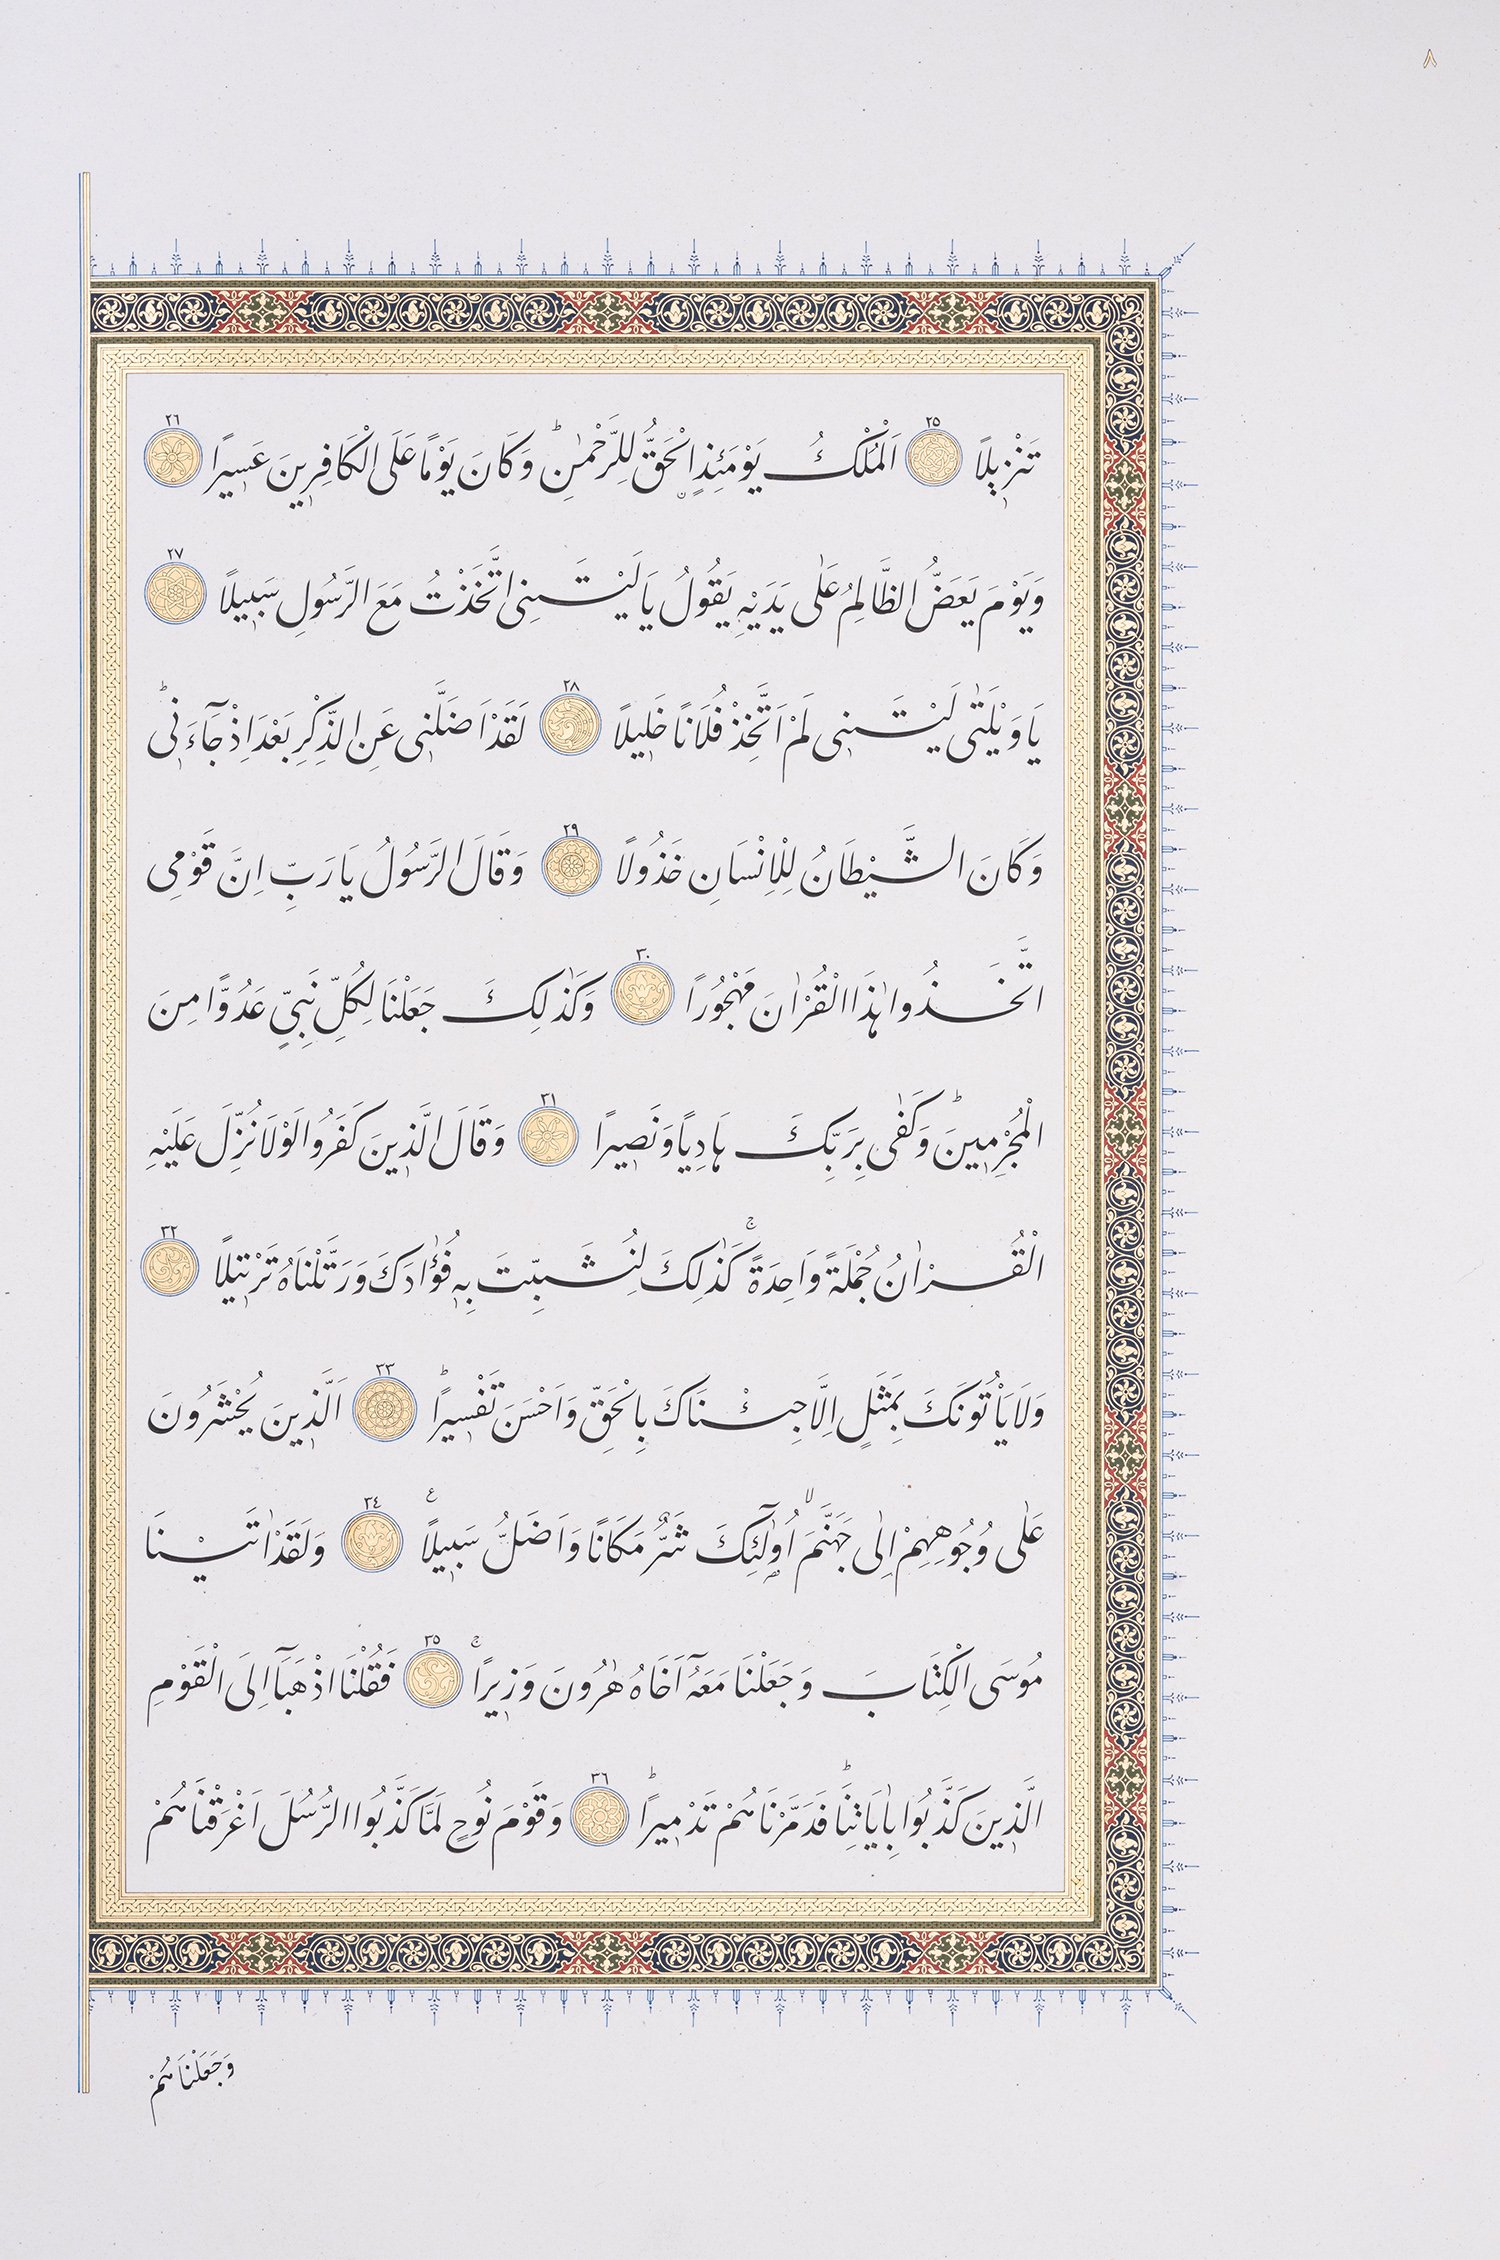 ٨
تَنْزِيلًا ٢٥ اَلْمُلْكُ يَوْمَئِذٍ الْحَقُّ لِلرَّحْمٰنِ وَكَانَ يَوْمًا عَلَى الْكَافِرِينَ عَسِيرًا ٢٦
وَيَوْمَ يَعَضُّ الظَّالِمُ عَلٰى يَدَيْهِ يَقُولُ يَا لَيْتَنِى اتَّخَذْتُ مَعَ الرَّسُولِ سَبِيلًا ٢٧
يَا وَيْلَتٰى لَيْتَنِى لَمْ اَتَّخِذْ فُلَانًا خَلِيلًا ٢٨ لَقَدْ اَضَلَّنِى عَنِ الذِّكْرِ بَعْدَ اِذْ جَٓاءَنِى
وَكَانَ الشَّيْطَانُ لِلْاِنْسَانِ خَذُولًا ٢٩ وَقَالَ الرَّسُولُ يَا رَبِّ اِنَّ قَوْمِى
اتَّخَذُوا هٰذَا الْقُرْاٰنَ مَهْجُورًا ٣٠ وَكَذٰلِكَ جَعَلْنَا لِكُلِّ نَبِىٍّ عَدُوًّا مِنَ
الْمُجْرِمِينَ وَكَفٰى بِرَبِّكَ هَادِيًا وَنَصِيرًا ٣١ وَقَالَ الَّذِينَ كَفَرُوا لَوْلَا نُزِّلَ عَلَيْهِ
الْقُرْاٰنُ جُمْلَةً وَاحِدَةً كَذٰلِكَ لِنُثَبِّتَ بِهِ فُؤٰادَكَ وَرَتَّلْنَاهُ تَرْتِيلًا ٣٢
وَلَا يَأْتُونَكَ بِمَثَلٍ اِلَّا جِئْنَاكَ بِالْحَقِّ وَاَحْسَنَ تَفْسِيرًا ٣٣ اَلَّذِينَ يُحْشَرُونَ
عَلٰى وُجُوهِهِمْ اِلٰى جَهَنَّمَ اُو۬لٰٓئِكَ شَرٌّ مَكَانًا وَاَضَلُّ سَبِيلًا ٣٤ وَلَقَدْ اٰتَيْنَا
مُوسَى الْكِتَابَ وَجَعَلْنَا مَعَهُٓ اَخَاهُ هٰرُونَ وَزِيرًا ٣٥ فَقُلْنَا اذْهَبَٓا اِلَى الْقَوْمِ
الَّذِينَ كَذَّبُوا بِاٰيَاتِنَا فَدَمَّرْنَاهُمْ تَدْمِيرًا ٣٦ وَقَوْمَ نُوحٍ لَمَّا كَذَّبُوا الرُّسُلَ اَغْرَقْنَاهُمْ
وَجَعَلْنَاهُمْ